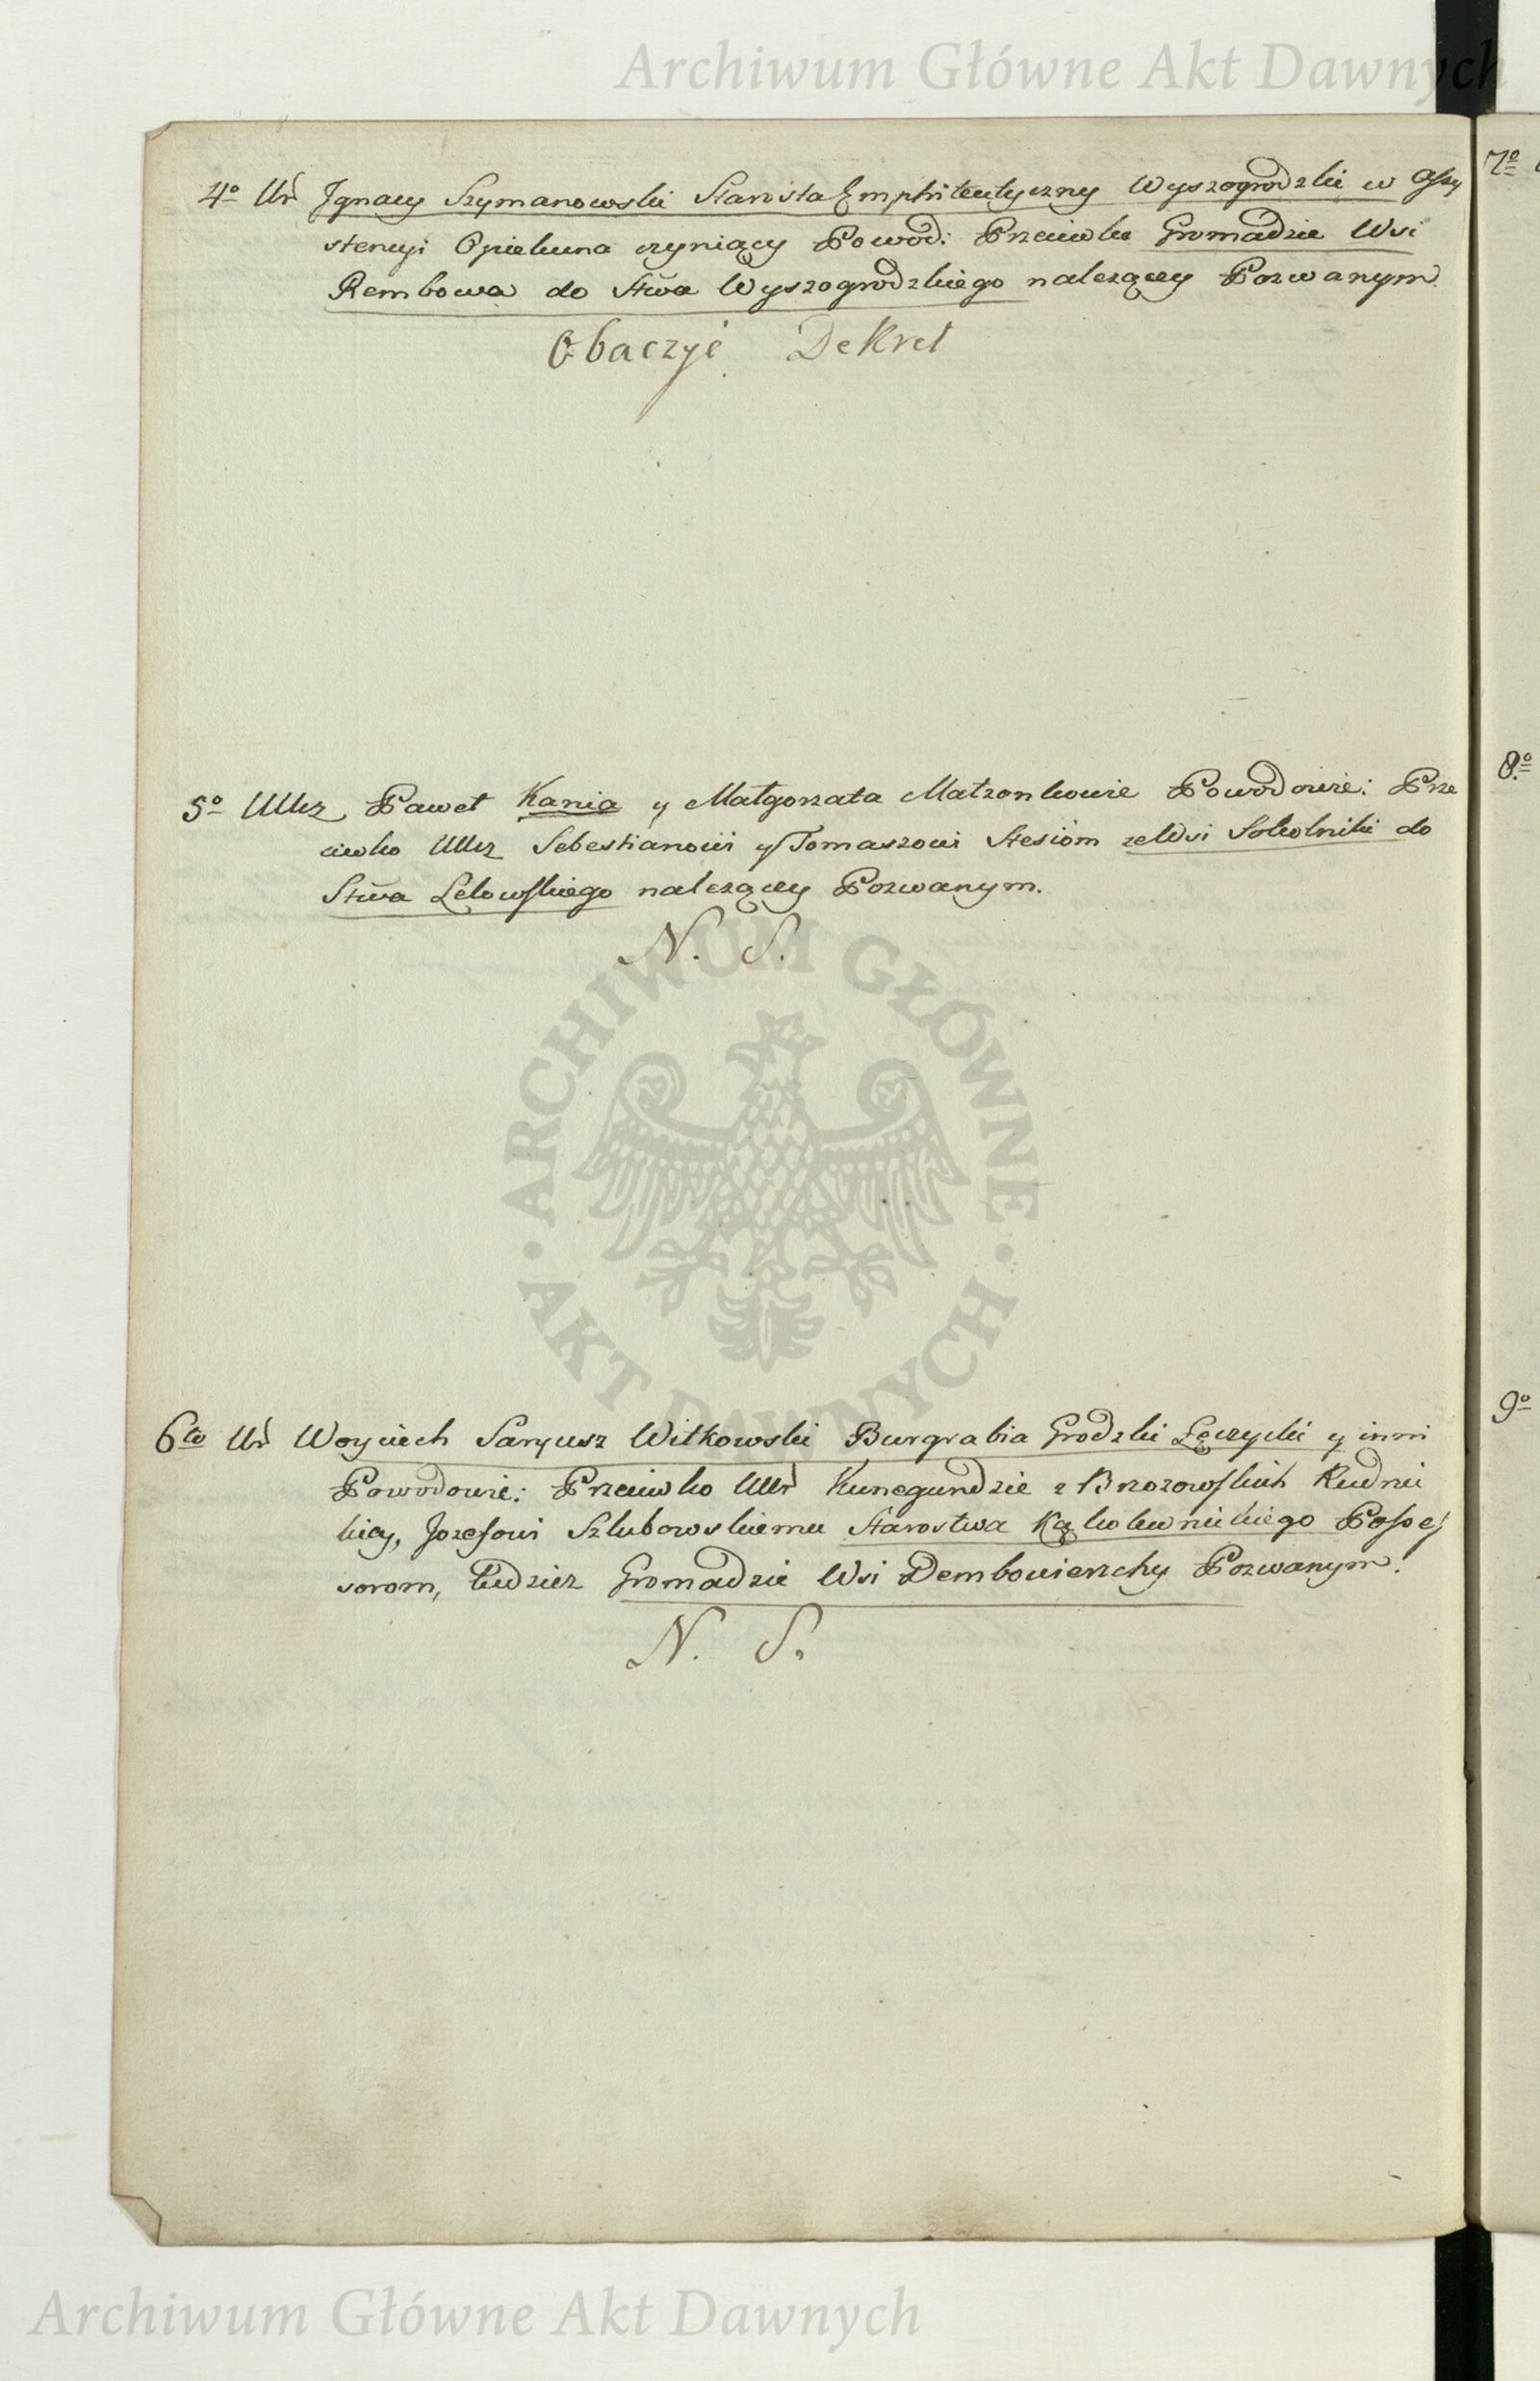 Archiwum Główne Akt Dawnych
4º Ur Jgnacy Szymanowski Starosta Emphiteutyczny Wyszogrodzki w Assy
stencyi Opiekuna czyniący Powod: Przeciwko Gromadzie Wsi
Rembowa do Stwa Wyszogrodzkiego należącey Pozwanym.
Obaczyć Dekret
5º UUcz Paweł Kania y Małgorzata Małżonkowie Powodowie: Prze
ciwko UUcz Sebestianowi y Tomaszowi Stesióm ze Wsi Sokolniki do
Stwa Lelowskiego należącey Pozwanym.
N. S.
6to Ur Woyciech Saryusz Witkowski Burgrabia Grodzki Łęczycki y inni
Powodowie: Przeciwko UUr Kunegundzie z Brzozowskich Rudnic
kiey, Jozefowi Szlubowskiemu Starostwa Kąkolewnickiego Posses
sorom, tudziez Gromadzie Wsi Dembowierzchy Pozwanym.
N. S.
7º
8º
9º
ARCHIWUM GŁÓWNE
AKT DAWNYCH
Archiwum Główne Akt Dawnych